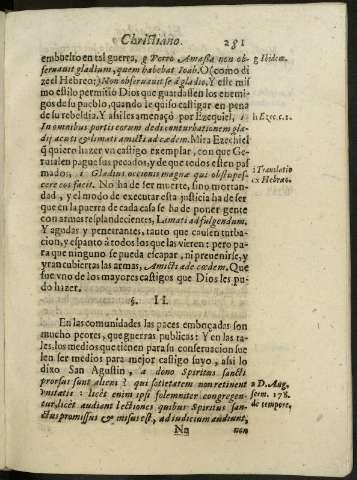 Christiano. 281
embuelto en tal guerra, g Porro Amasa non ob- g Ibidem.
seruauit gladium, quem habebat Ioab. O (como di
ze el Hebreo:) Non obseruauit se à gladio. Y este mis
mo estilo permitiò Dios que guardassen los enemi-
gos de su pueblo, quando le quiso castigar en pena
de su rebeldia. Y assi les amenaçò por Ezequiel, h h Ezec. c. 21.
In omnibus portis eorum dedi conturbationem gla-
dij acuti & limati amicti ad cædem. Mira Ezechiel
q quiero hazer vn castigo exemplar, con que Ge-
rusalen pague sus pecados, y de que todos esten pas
mados, i Gladius occisionis magnæ qui obstupes- i Translatio
cere eos facit. No ha de ser muerte, sino mortan- ex Hebræo.
dad, y el modo de executar esta justicia ha de ser
que en la puerta de cada casa se ha de poner gente
con armas resplandecientes, Limati ad fulgendum.
Y agudas y penetrantes, tanto que causen turba-
cion, y espanto à todos los que las vieren: pero pa-
ra que ninguno se pueda escapar, ni preuenirse, y
yran cubiertas las armas, Amicti ad cædem. Que
fue vno de los mayores castigos que Dios les pu-
do hazer.
§. II.
En las comunidades las paces emboçadas son
mucho peores, que guerras publicas: Y en las ta-
les, los medios que tienen para su conseruacion sue
len ser medios para mejor castigo suyo, assi lo
dixo San Agustin, a dono Spiritus sancti a D. Aug.
prorsus sunt alieni? qui societatem non retinent serm. 178.
vnitatis: licèt enim ipsi solemniter congregen- de tempore.
tur, licèt audiant lectiones quibus Spiritus san-
ctus promissus & misus est, ad iudicium audiunt,
Nn non